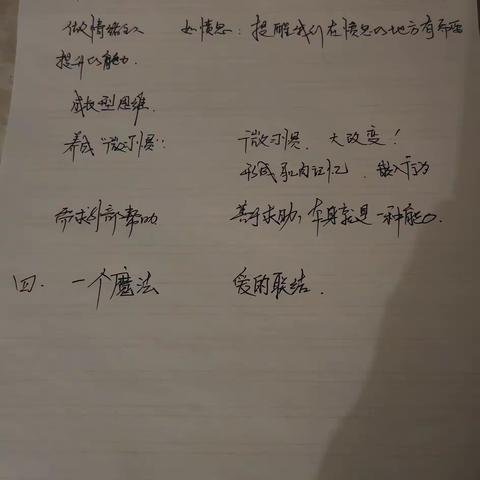 做情绪主人 如愤怒：提醒我们在愤怒的地方有需要
提升的能力.
成长型思维.
养成“微习惯”： 微习惯，大改变！
形成肌肉记忆，嵌入行为
寻求外部帮助 善于求助，本身就是一种能力。
四. 一个魔法 爱的联结.